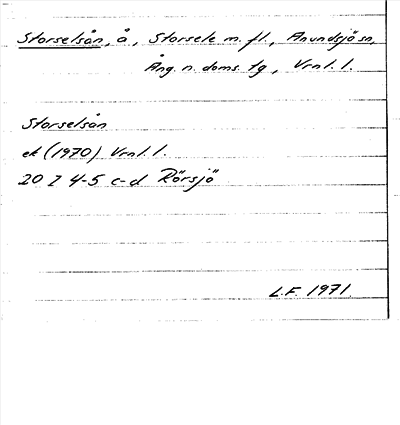 Storselsån, å, Storsele m. fl., Anundsjö sn,
Ång. n. doms. tg, Vrnl. l.
Storselsån
ek (1970) Vrnl. l.
20 I 4-5 c-d Rörsjö
L.F. 1971.